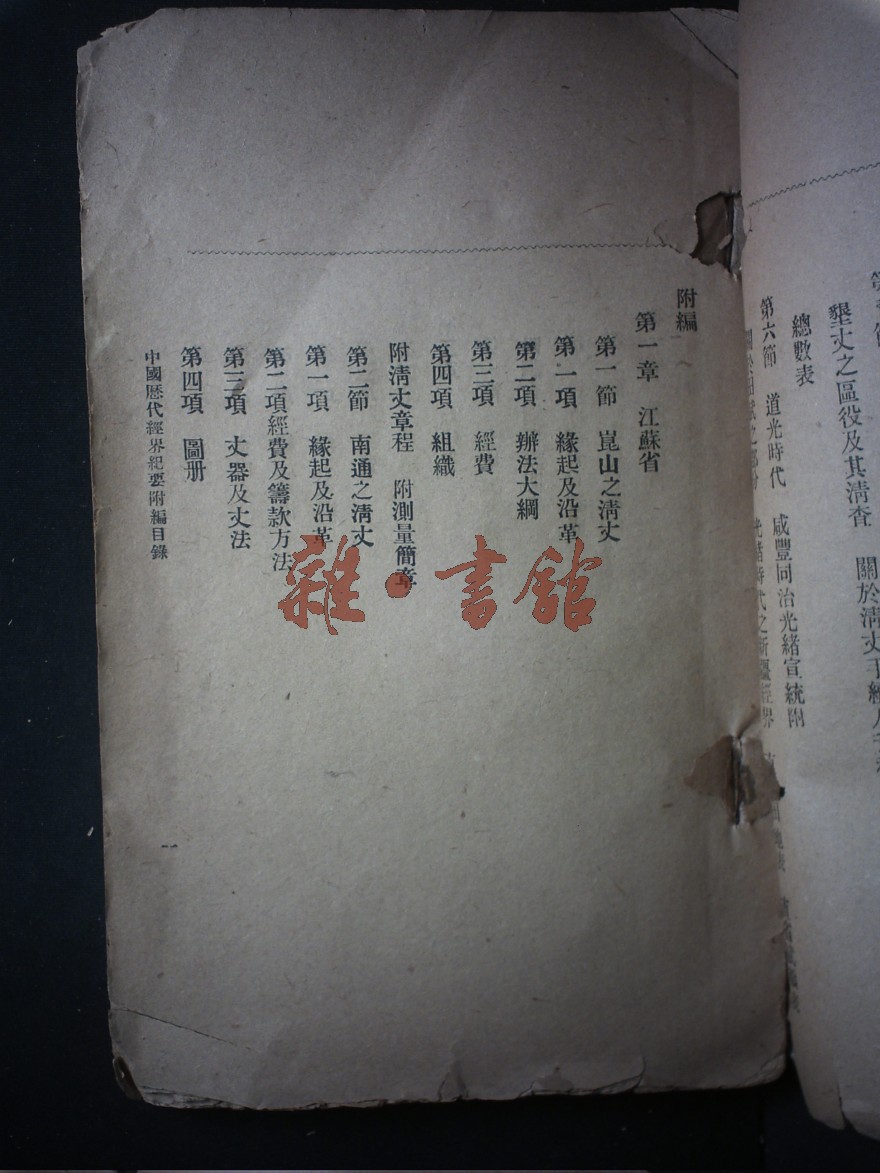 墾丈之區役及其清查　關於清丈
總數表
第六節　道光時代　咸豐同治光緒宣統附
附編
第一章　江蘇省
第一節　崑山之清丈
第一項　緣起及沿革
第二項　辦法大綱
第三項　經費
第四項　組織
附清丈章程　附測量簡章
第二節　南通之清丈
第一項　緣起及沿革
第二項經費及籌款方法
第三項　丈器及丈法
第四項　圖册
中國歷代經界紀要附編目錄
一
雜·書館